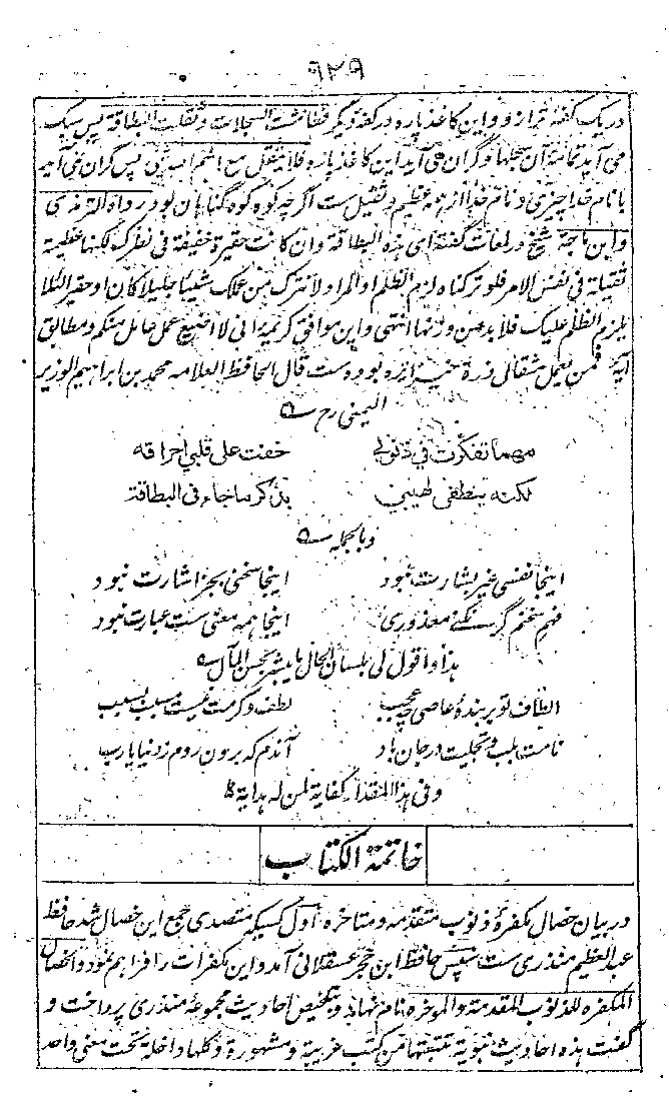 ۹۲۹
در یک کفهٔ ترازو و این کاغذ پاره در کفهٔ دیگر فطاشت السجلات وثقلت البطاقة پس سبک
می آید تمامهٔ آن سجلها و گران می آید این کاغذ پاره فلا یثقل مع اسم الله شیٔ پس گران نمی آید
با نام خدا چیزی و نام خدا از همه عظیم و ثقیل ست اگرچه کوه کوه گناهان بود رواه الترمذی
وابن ماجة شیخ در لمعات گفته ای هذه البطاقة وان کانت حقیرة خفیفة فی نظرک لکنها عظیمة
ثقیلة فی نفس الامر فلو ترکناه لزم الظلم او المراد لا نترک من عملک شیئا جلیلا کان او حقیرا لئلا
یلزم الظلم علیک فلا بد من وزنها انتهی و این موافق کریمهٔ انی لا اضیع عمل عامل منکم و مطابق
آیهٔ فمن یعمل مثقال ذرة خیرا یره بوده ست قال الحافظ العلامه محمد بن ابراهیم الوزیر
الیمنی رح ؎
مهما تفکرت فی ذنوبی خفت علی قلبی احراقه
لکنه ینطفی لهیبی بذکر ما جاء فی البطاقة
وبالجمله ؎
اینجا نفسی غیر بشارت نبود اینجا سخنی بجز اشارت نبود
فهم سخنم گر نکنی معذوری اینجا همه معنی ست عبارت نبود
هذا واقول لی بلسان الحال بحسن المآل ؎
الطاف تو بر بندهٔ عاصی چه عجیب لطف و کرمت نیست مسبب بسبب
نامت بلب و تجلیت در جان باد آندم که برون روم ز دنیا یا رب
وفی هذا المقدار کفایة لمن له هدایة
خاتمة الکتاب
در بیان خصال مکفرهٔ ذنوب متقدمه و متاخره اول کسیکه متصدی جمع این خصال شد حافظ
عبدالعظیم منذری ست سپس حافظ ابن حجر عسقلانی آمد و این مکفرات را فراهم نمود والخصال
المکفره للذنوب المقدمة والموخره نام نهاد و بتلخیص احادیث مجموعهٔ منذری پرداخت و
گفت هذه احادیث نبویة تتبعتها من کتب غریبة ومشهورة وکلها داخلة تحت معنی واحد